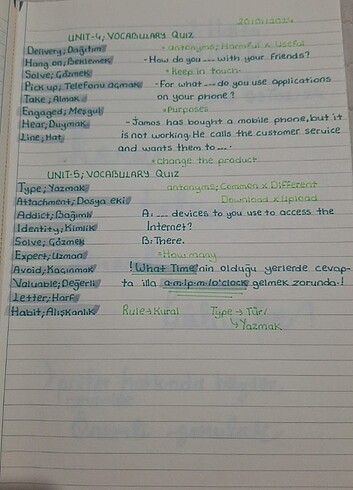 20/01/2024
UNIT-4, VOCABULARY QUIZ
Delivery; Dağıtım
* antonyms; Harmful x Useful
Hang on; Beklemek
- How do you --- with your friends?
Solve; Çözmek
* Keep in touch
Pick up; Telefonu açmak
- For what --- do you use applications
Take; Almak
on your phone?
Engaged; Meşgul
* Purposes
Hear; Duymak
- Jamos has bought a mobile phone, but it
Line; Hat
is not working. He calls the customer service
and wants them to ---.
* change the product
UNIT-5, VOCABULARY QUIZ
Type; Yazmak
antonyms; Common x Different
Attachment; Dosya eki
Download x Upload
Addict; Bağımlı
A: --- devices to you use to access the
Identity; Kimlik
Internet?
Solve; Çözmek
B: There.
Expert; Uzman
* How many
Avoid; Kaçınmak
! What Time'nin olduğu yerlerde cevap-
Valuable; Değerli
ta illa a.m/p.m/o'clock gelmek zorunda!
Letter; Harf
Habit; Alışkanlık
Rule → Kural
Type → Tür/
↳ Yazmak